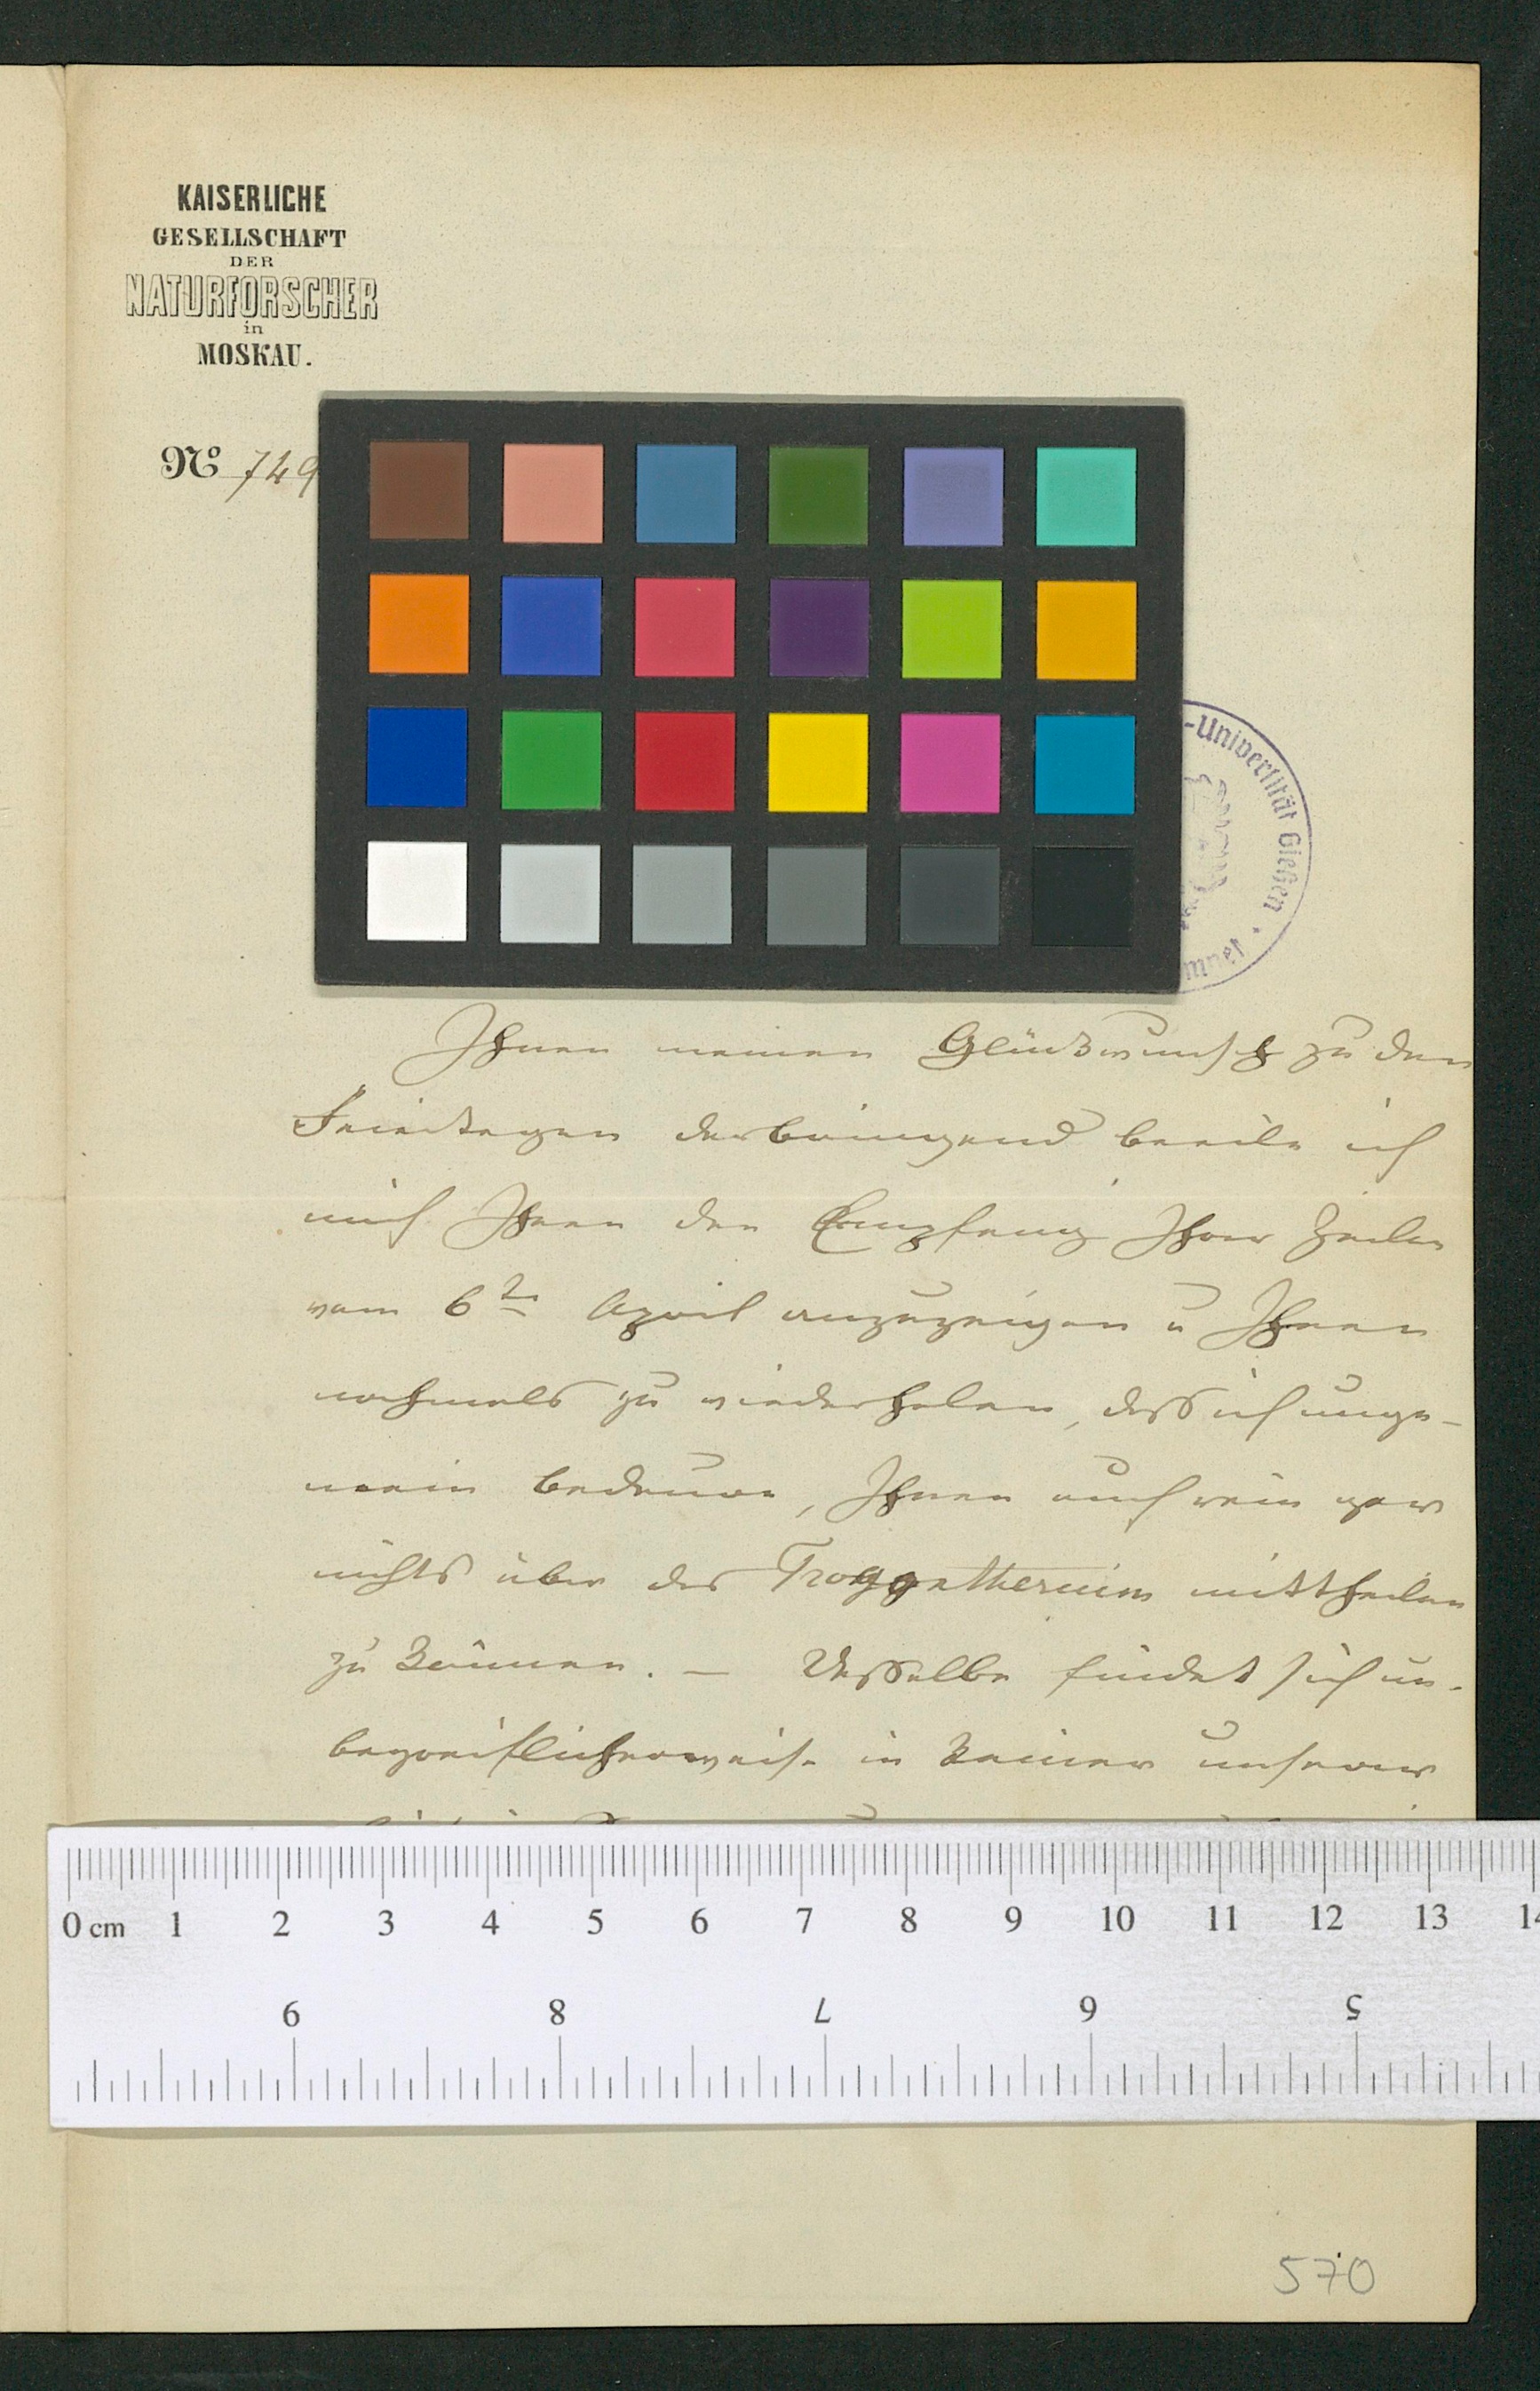 KAISERLICHE
GESELLSCHAFT
DER
NATURFORSCHER
in
MOSKAU.
No 749
-Universität Gießen
Ihnen meinen Glückwunsch zu den
Feiertagen darbringend beeile ich
mich Ihnen den Empfang Ihrer Zeilen
vom 6ten April anzuzeigen u Ihnen
nochmals zu wiederholen, dass ich unge-
mein bedeure, Ihnen auch rein gar
nichts über das Trogontherium mittheilen
zu können. — Dasselbe findet sich un-
begreiflicherweise in keiner unserer
0 cm 1 2 3 4 5 6 7 8 9 10 11 12 13 14
9 8 7 6 5
570